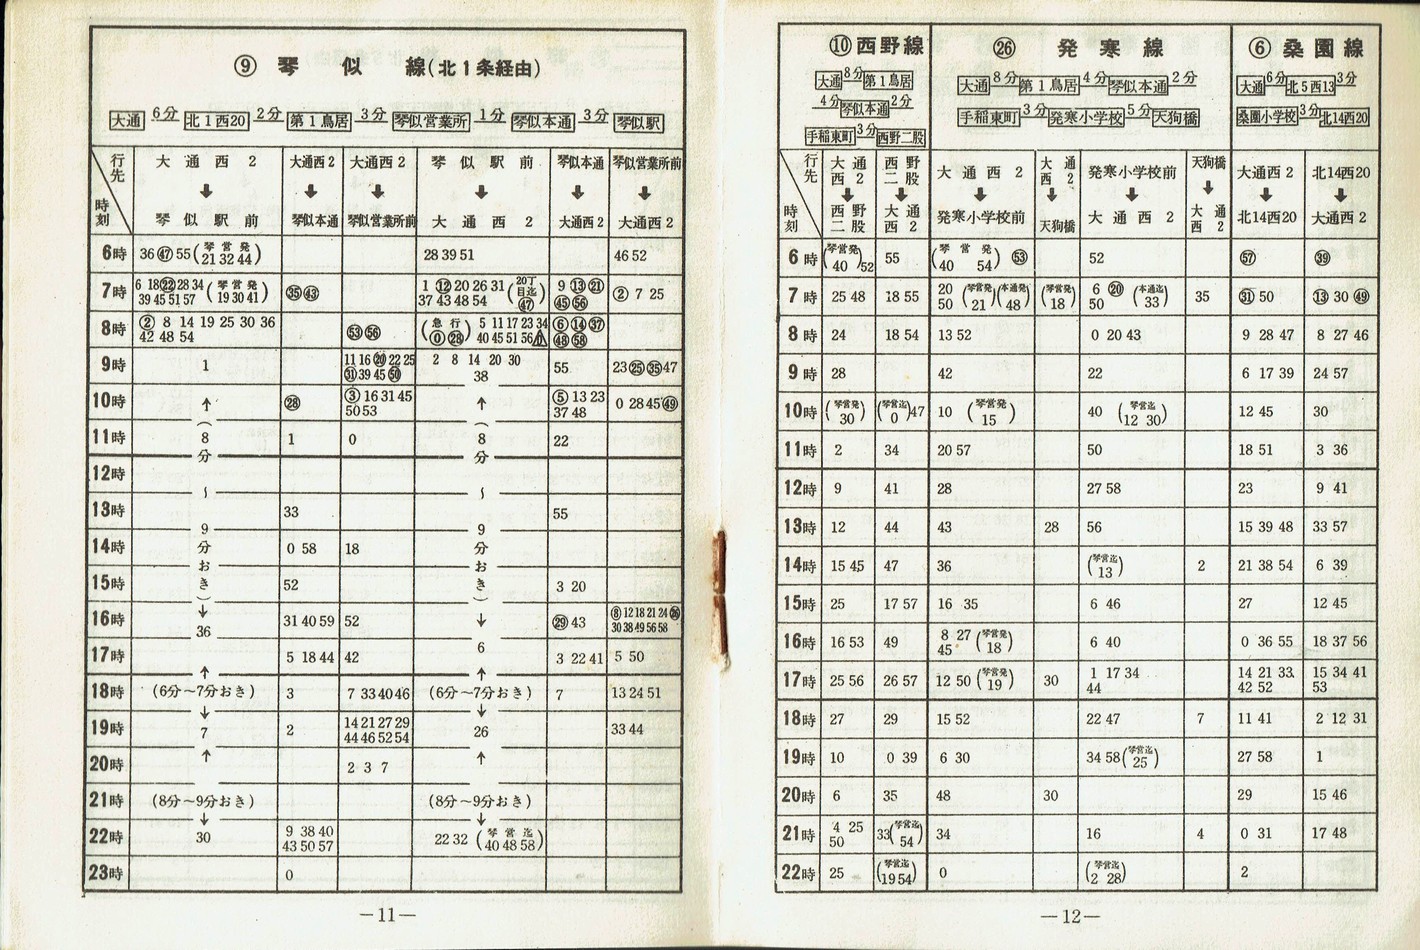 ⑨ 琴似線(北1条経由)
大通 6分 北1西20 2分 第1鳥居 3分 琴似営業所 1分 琴似本通 3分 琴似駅
行先 時刻 大通西2 → 琴似駅前 大通西2 → 琴似本通 大通西2 → 琴似営業所前 琴似駅前 → 大通西2 琴似本通 → 大通西2 琴似営業所前 → 大通西2
6時 36 ㊼ 55 (琴営発 21 32 44) 28 39 51 46 52
7時 6 18 ㉒ 28 34 39 45 51 57 (琴営発 19 30 41) ㉟ ㊸ 1 ⑫ 20 26 31 37 43 48 54 (20丁目迄 ㊼) 9 ⑬ ㉑ ㊺ 56 ② 7 25
8時 ② 8 14 19 25 30 36 42 48 54 53 56 (急行 0 28) 5 11 17 23 34 40 45 51 56 ⑥ ⑭ ㊲ ㊽ 58
9時 1 11 16 ⑳ 22 25 ㉛ 39 45 ㊿ 2 8 14 20 30 38 55 23 ㉕ ㉟ 47
10時 ↑ ㉘ ③ 16 31 45 50 53 ↑ ⑤ 13 23 37 48 0 28 45 ㊾
11時 (8分 1 0 (8分 22
12時 〜 〜
13時 9 33 9 55
14時 分お 0 58 18 分お
15時 き) 52 き) 3 20
16時 ↓ 36 31 40 59 52 ↓ ㉙ 43 ⑧ 12 18 21 24 ㉖ 30 38 49 56 58
17時 ↑ 5 18 44 42 6 ↑ 3 22 41 5 50
18時 (6分〜7分おき) 3 7 33 40 46 (6分〜7分おき) 7 13 24 51
19時 ↓ 7 2 14 21 27 29 44 46 52 54 ↓ 26 33 44
20時 ↑ 2 3 7 ↑
21時 (8分〜9分おき) (8分〜9分おき)
22時 ↓ 30 9 38 40 43 50 57 ↓ 22 32 (琴営迄 40 48 58)
23時 0
—11—
⑩西野線 ㉖ 発寒線 ⑥ 桑園線
大通 8分 第1鳥居 4分 琴似本通 2分 手稲東町 3分 西野二股
大通 8分 第1鳥居 4分 琴似本通 2分 手稲東町 3分 発寒小学校 5分 天狗橋
大通 6分 北5西13 3分 桑園小学校 3分 北14西20
行先 時刻 大通西2 → 西野二股 西野二股 → 大通西2 大通西2 → 発寒小学校前 大通西2 → 天狗橋 発寒小学校前 → 大通西2 天狗橋 → 大通西2 大通西2 → 北14西20 北14西20 → 大通西2
6時 (琴営発 40) 52 55 (琴営発 40 54) 53 52 57 ㊴
7時 25 48 18 55 20 50 (琴営発 21) (本通発 48) (琴営発 18) 6 ⑳ 50 (本通迄 33) 35 ㉛ 50 ⑬ 30 ㊾
8時 24 18 54 13 52 0 20 43 9 28 47 8 27 46
9時 28 42 22 6 17 39 24 57
10時 (琴営発 30) (琴営迄 0) 47 10 (琴営発 15) 40 (琴営迄 12 30) 12 45 30
11時 2 34 20 57 50 18 51 3 36
12時 9 41 28 27 58 23 9 41
13時 12 44 43 28 56 15 39 48 33 57
14時 15 45 47 36 (琴営迄 13) 2 21 38 54 6 39
15時 25 17 57 16 35 6 46 27 12 45
16時 16 53 49 8 27 45 (琴営発 18) 6 40 0 36 55 18 37 56
17時 25 56 26 57 12 50 (琴営発 19) 30 1 17 34 44 14 21 33 42 52 15 34 41 53
18時 27 29 15 52 22 47 7 11 41 2 12 31
19時 10 0 39 6 30 34 58 (琴営迄 25) 27 58 1
20時 6 35 48 30 29 15 46
21時 4 25 50 33 (琴営迄 54) 34 16 4 0 31 17 48
22時 25 (琴営迄 19 54) 0 (琴営迄 2 28) 2
—12—